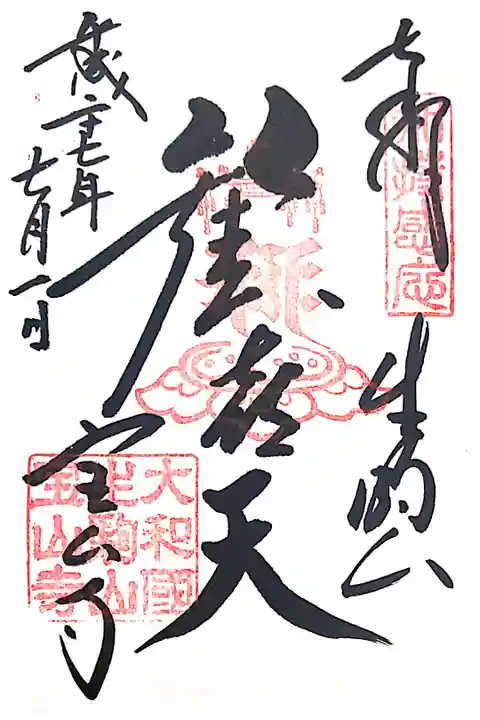 奉拝
生駒山
歓喜天
宝山寺
平成二十七年
七月一日
大和國
生駒山
宝山寺